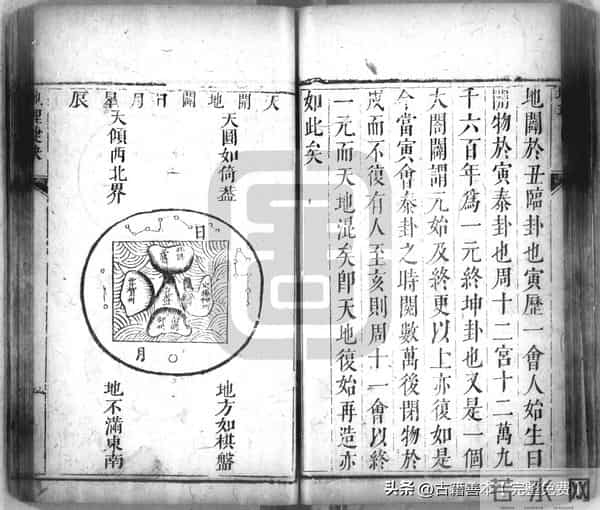 地闢於丑臨卦也寅歷一會人始生日
開物於寅泰卦也周十二宮十二萬九
千六百年爲一元終坤卦也又是一個
大闔闢謂元始及終更以上亦復如是
今當寅會泰卦之時閱數萬後閉物於
戌而不復有人至亥則周十一會以終
一元而天地混矣即天地復始再造亦
如此矣
天開地闢日月星辰
天圓如倚蓋
天傾西北界
日
月
地方如棋盤
地不滿東南
头条 @古籍善本
完整免费